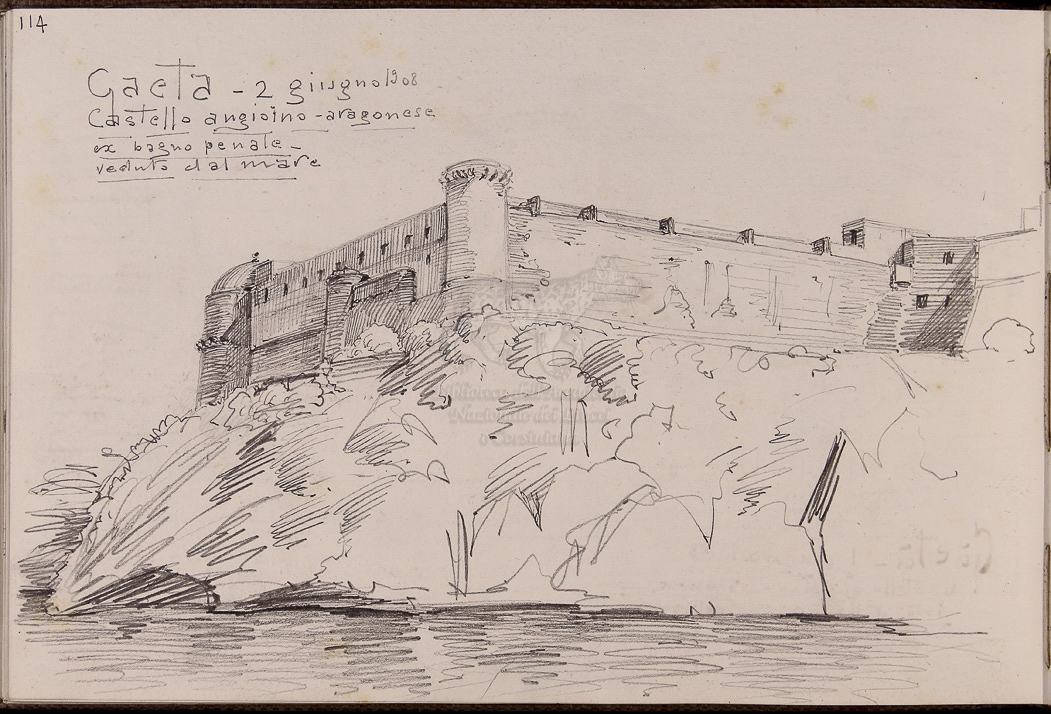 114
Gaeta - 2 giugno 1908
Castello angioino-aragonese
ex bagno penale -
veduto dal mare
Gaeta